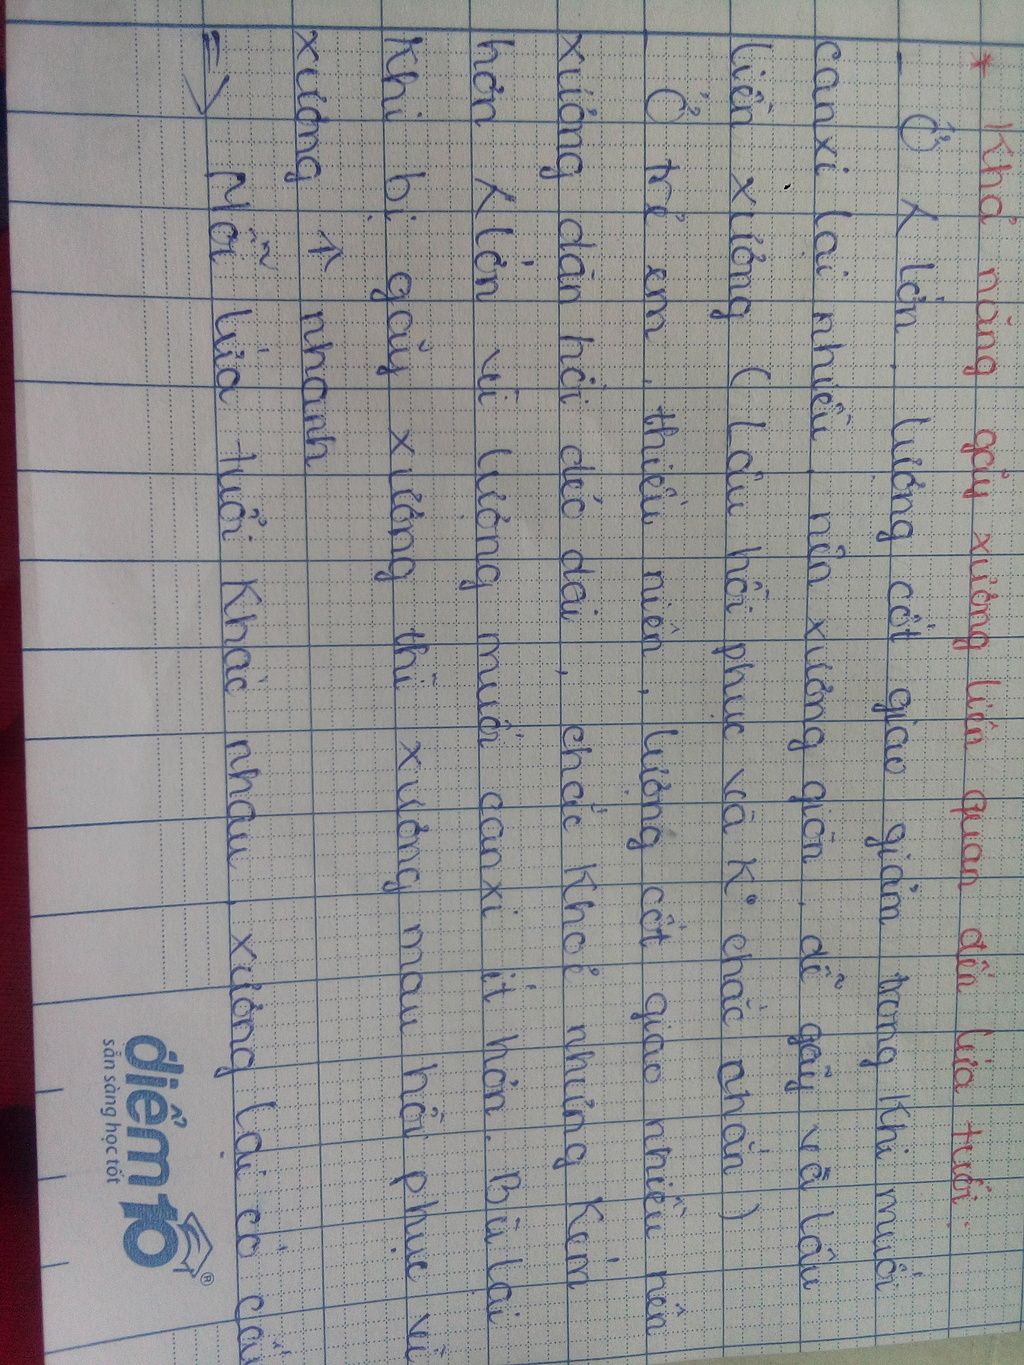 * Khả năng gãy xương liên quan đến lứa tuổi.
- Ở λ lớn, lượng cốt giao giảm trong khi muối
canxi lại nhiều, nên xương giòn, dễ gãy và lâu
liền xương (Lâu hồi phục và K° chắc chắn)
- Ở trẻ em, thiếu niên, lượng cốt giao nhiều nên
xương đàn hồi dẻo dai, chắc khoẻ nhưng kém
hơn λ lớn vì lượng muối canxi ít hơn. Bù lại
khi bị gãy xương thì xương mau hồi phục vì
xương ↑ nhanh
=> Mỗi lứa tuổi khác nhau, xương lại có
điểm 10 ®
sẵn sàng học tốt